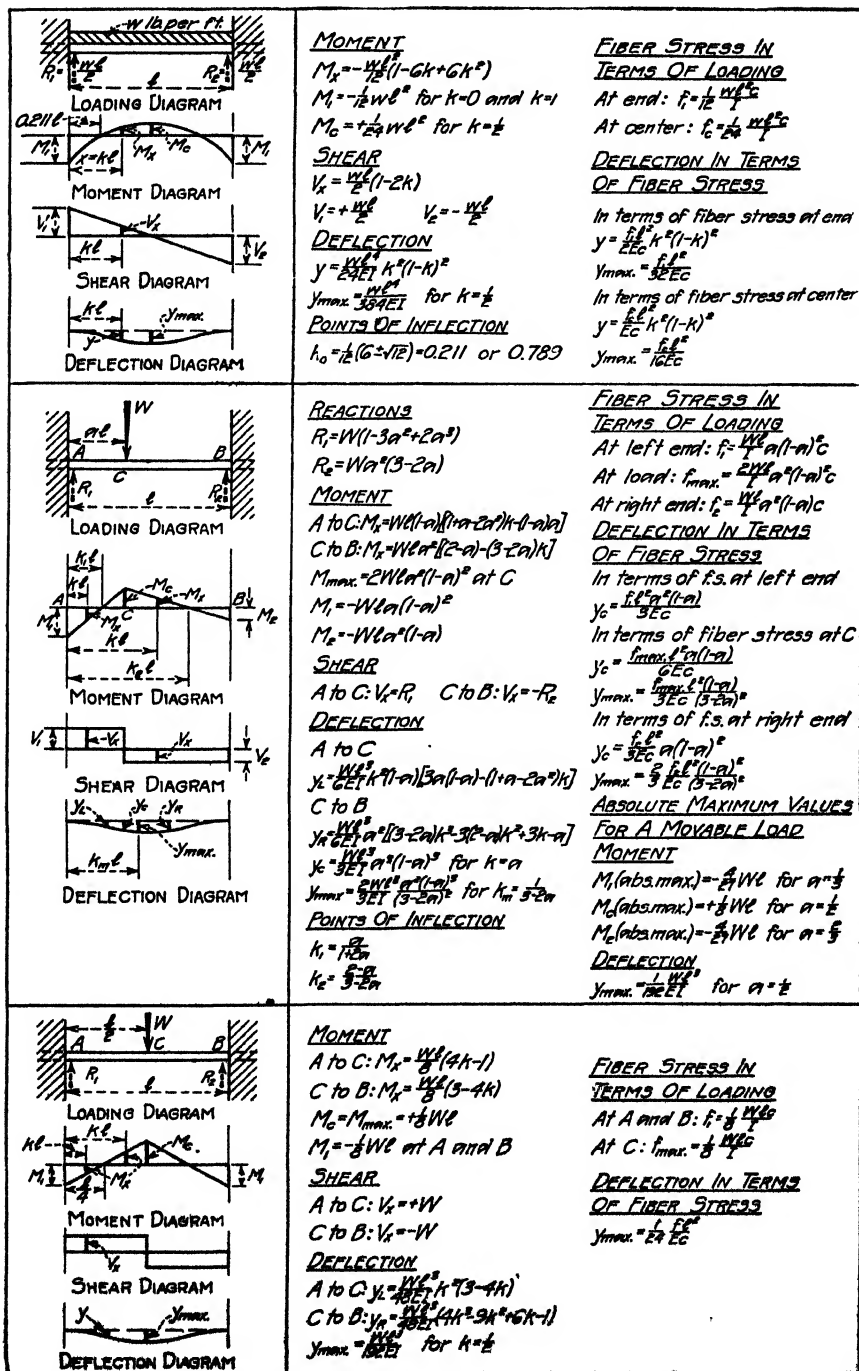 w lb per ft.
R₁= wl/2
l
R₂= wl/2
LOADING DIAGRAM
0.211l
M₁
Mₓ
M_c
M₁
x=kl
MOMENT DIAGRAM
V₁
Vₓ
kl
V₂
SHEAR DIAGRAM
kl
y
ymax.
DEFLECTION DIAGRAM
MOMENT
Mₓ=-wl²/12(1-6k+6k²)
M₁=-1/12 wl² for k=0 and k=1
M_c=+1/24 wl² for k=1/2
SHEAR
Vₓ=wl/2(1-2k)
V₁=+wl/2 V₂=-wl/2
DEFLECTION
y=wl⁴/24EI k²(1-k)²
ymax.=wl⁴/384EI for k=1/2
POINTS OF INFLECTION
k₀=1/12(6±√12)=0.211 or 0.789
FIBER STRESS IN
TERMS OF LOADING
At end: f₁=1/12 wl²c/I
At center: f_c=1/24 wl²c/I
DEFLECTION IN TERMS
OF FIBER STRESS
In terms of fiber stress at end
y=f₁l²/2Ec k²(1-k)²
ymax.=f₁l²/32Ec
In terms of fiber stress at center
y=f_cl²/Ec k²(1-k)²
ymax.=f_cl²/16Ec
al
W
A
B
C
R₁
R₂
l
LOADING DIAGRAM
k₁l
kl
A
M_c
Mₓ
B
M₂
M₁
Mₓ
C
kl
k₂l
MOMENT DIAGRAM
V₁
Vₓ
Vₓ
V₂
SHEAR DIAGRAM
y_L
y_c
y_R
ymax.
k_ml
DEFLECTION DIAGRAM
REACTIONS
R₁=W(1-3a²+2a³)
R₂=Wa²(3-2a)
MOMENT
A to C: Mₓ=Wl(1-a)[(1+a-2a²)k-(1-a)a]
C to B: Mₓ=Wla²[(2-a)-(3-2a)k]
Mmax.=2Wla²(1-a)² at C
M₁=-Wla(1-a)²
M₂=-Wla²(1-a)
SHEAR
A to C: Vₓ=R₁ C to B: Vₓ=-R₂
DEFLECTION
A to C
y_L=Wl³/6EI k²(1-a)[3a(1-a)-(1+a-2a²)k]
C to B
y_R=Wl³/6EI a²[(3-2a)k³-3(2-a)k²+3k-a]
y_c=Wl³/3EI a³(1-a)³ for k=a
ymax=2Wl³/3EI a²(1-a)³/(3-2a)² for k_m=1/3-2a
POINTS OF INFLECTION
k₁=a/1+2a
k₂=2-a/3-2a
FIBER STRESS IN
TERMS OF LOADING
At left end: f₁=Wl/I a(1-a)²c
At load: fmax.=2Wl/I a²(1-a)²c
At right end: f₂=Wl/I a²(1-a)c
DEFLECTION IN TERMS
OF FIBER STRESS
In terms of f.s. at left end
y_c=f₁l²a²(1-a)/3Ec
In terms of fiber stress at C
y_c=fmax.l²a(1-a)/6Ec
ymax.=fmax.l²(1-a)/3Ec(3-2a)²
In terms of f.s. at right end
y_c=f₂l²/3Ec a(1-a)²
ymax.=2/3 f₂l²/Ec (1-a)²/(3-2a)²
ABSOLUTE MAXIMUM VALUES
FOR A MOVABLE LOAD
MOMENT
M₁(abs.max.)=-4/27 Wl for a=1/3
M_c(abs.max.)=+1/8 Wl for a=1/2
M₂(abs.max.)=-4/27 Wl for a=2/3
DEFLECTION
ymax.=1/192 Wl³/EI for a=1/2
l/2
W
A
C
B
R₁
R₂
l
LOADING DIAGRAM
kl
kl
M_c
M₁
Mₓ
M₁
l/4
MOMENT DIAGRAM
Vₓ
SHEAR DIAGRAM
y
ymax.
DEFLECTION DIAGRAM
MOMENT
A to C: Mₓ=Wl/8(4k-1)
C to B: Mₓ=Wl/8(3-4k)
M_c=Mmax.=+1/8Wl
M₁=-1/8Wl at A and B
SHEAR
A to C: Vₓ=+W
C to B: Vₓ=-W
DEFLECTION
A to C: y_L=Wl³/48EI k²(3-4k)
C to B: y_R=Wl³/48EI(4k³-9k²+6k-1)
ymax=Wl³/192EI for k=1/2
FIBER STRESS IN
TERMS OF LOADING
At A and B: f₁=1/8 Wlc/I
At C: fmax.=1/8 Wlc/I
DEFLECTION IN TERMS
OF FIBER STRESS
ymax.=1/24 fl²/Ec